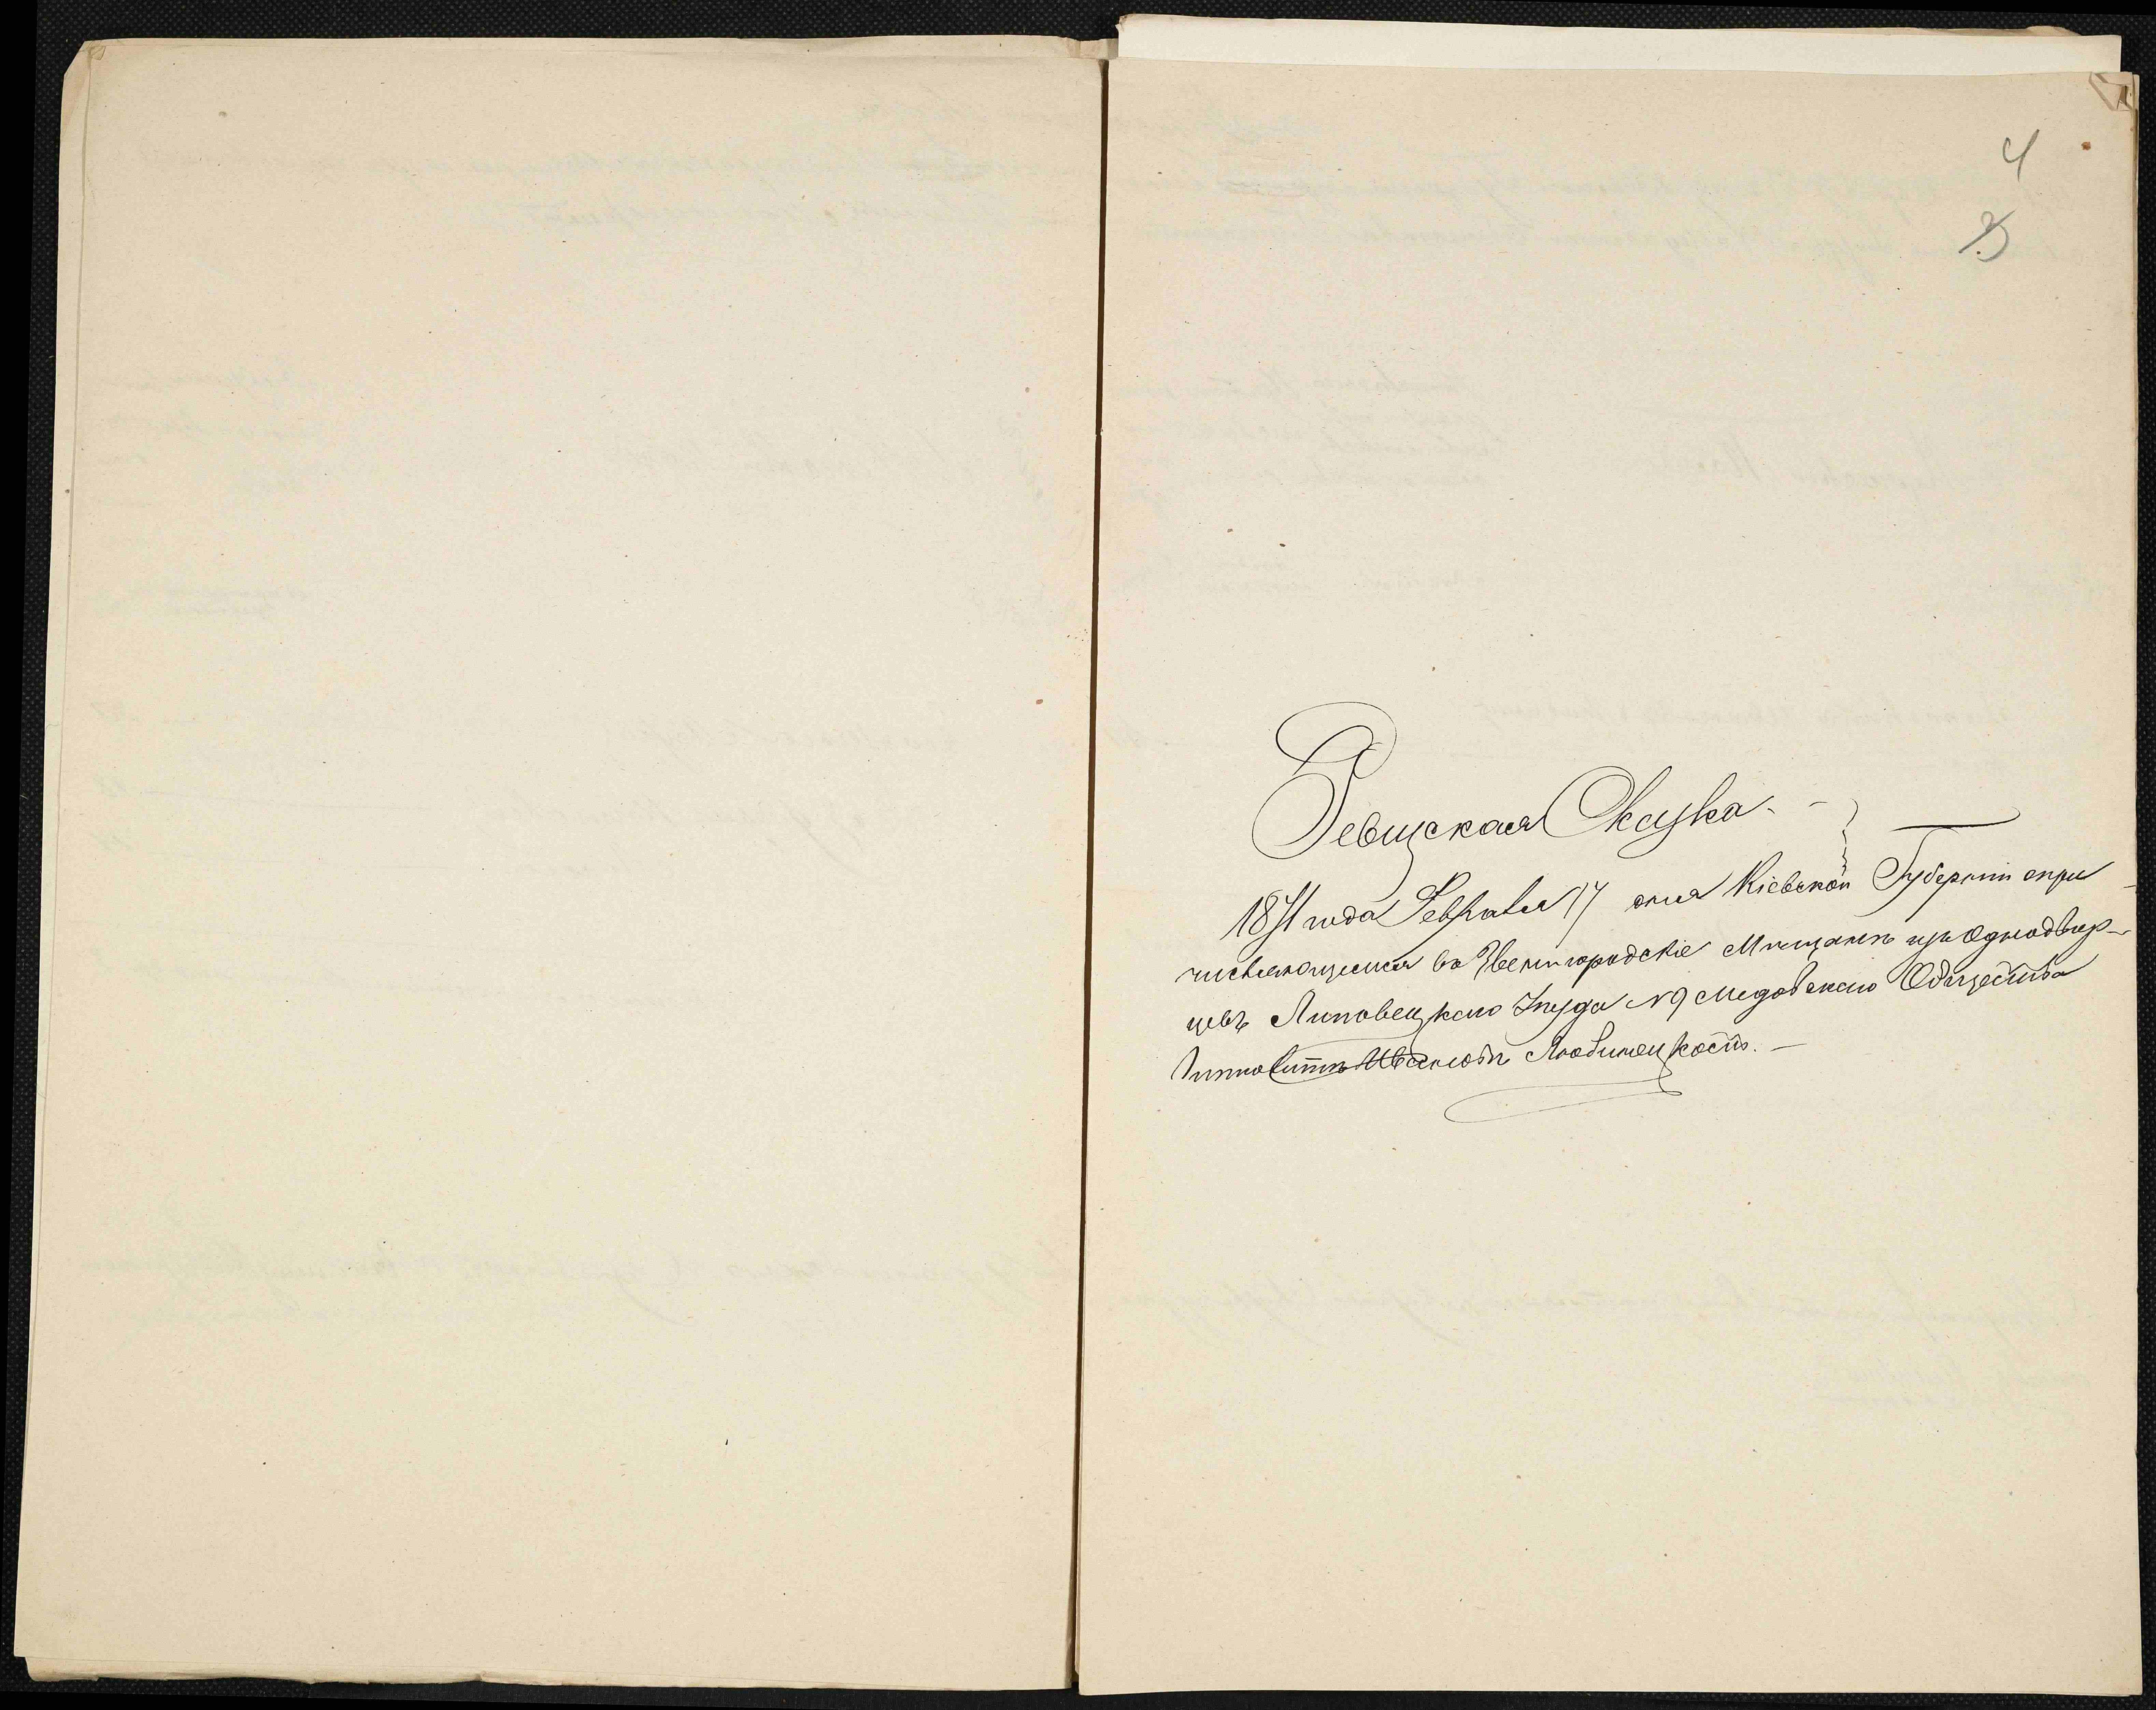 4
3
Ревизская Сказка.
1871 года Февраля 17 дня Кіевской Губерніи о при
числяющемся въ Звенигородскіе Мещане изъ Однодвор-
цевъ Липовецкаго Уезда № 9 Медовскаго Общества
Ивановѣ Любинецкомъ.